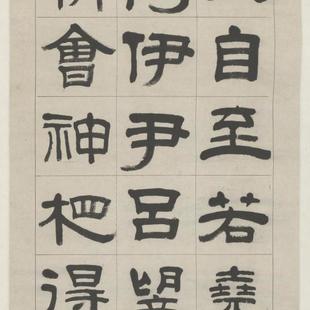 自至若堯
伊尹呂朢
會神相得